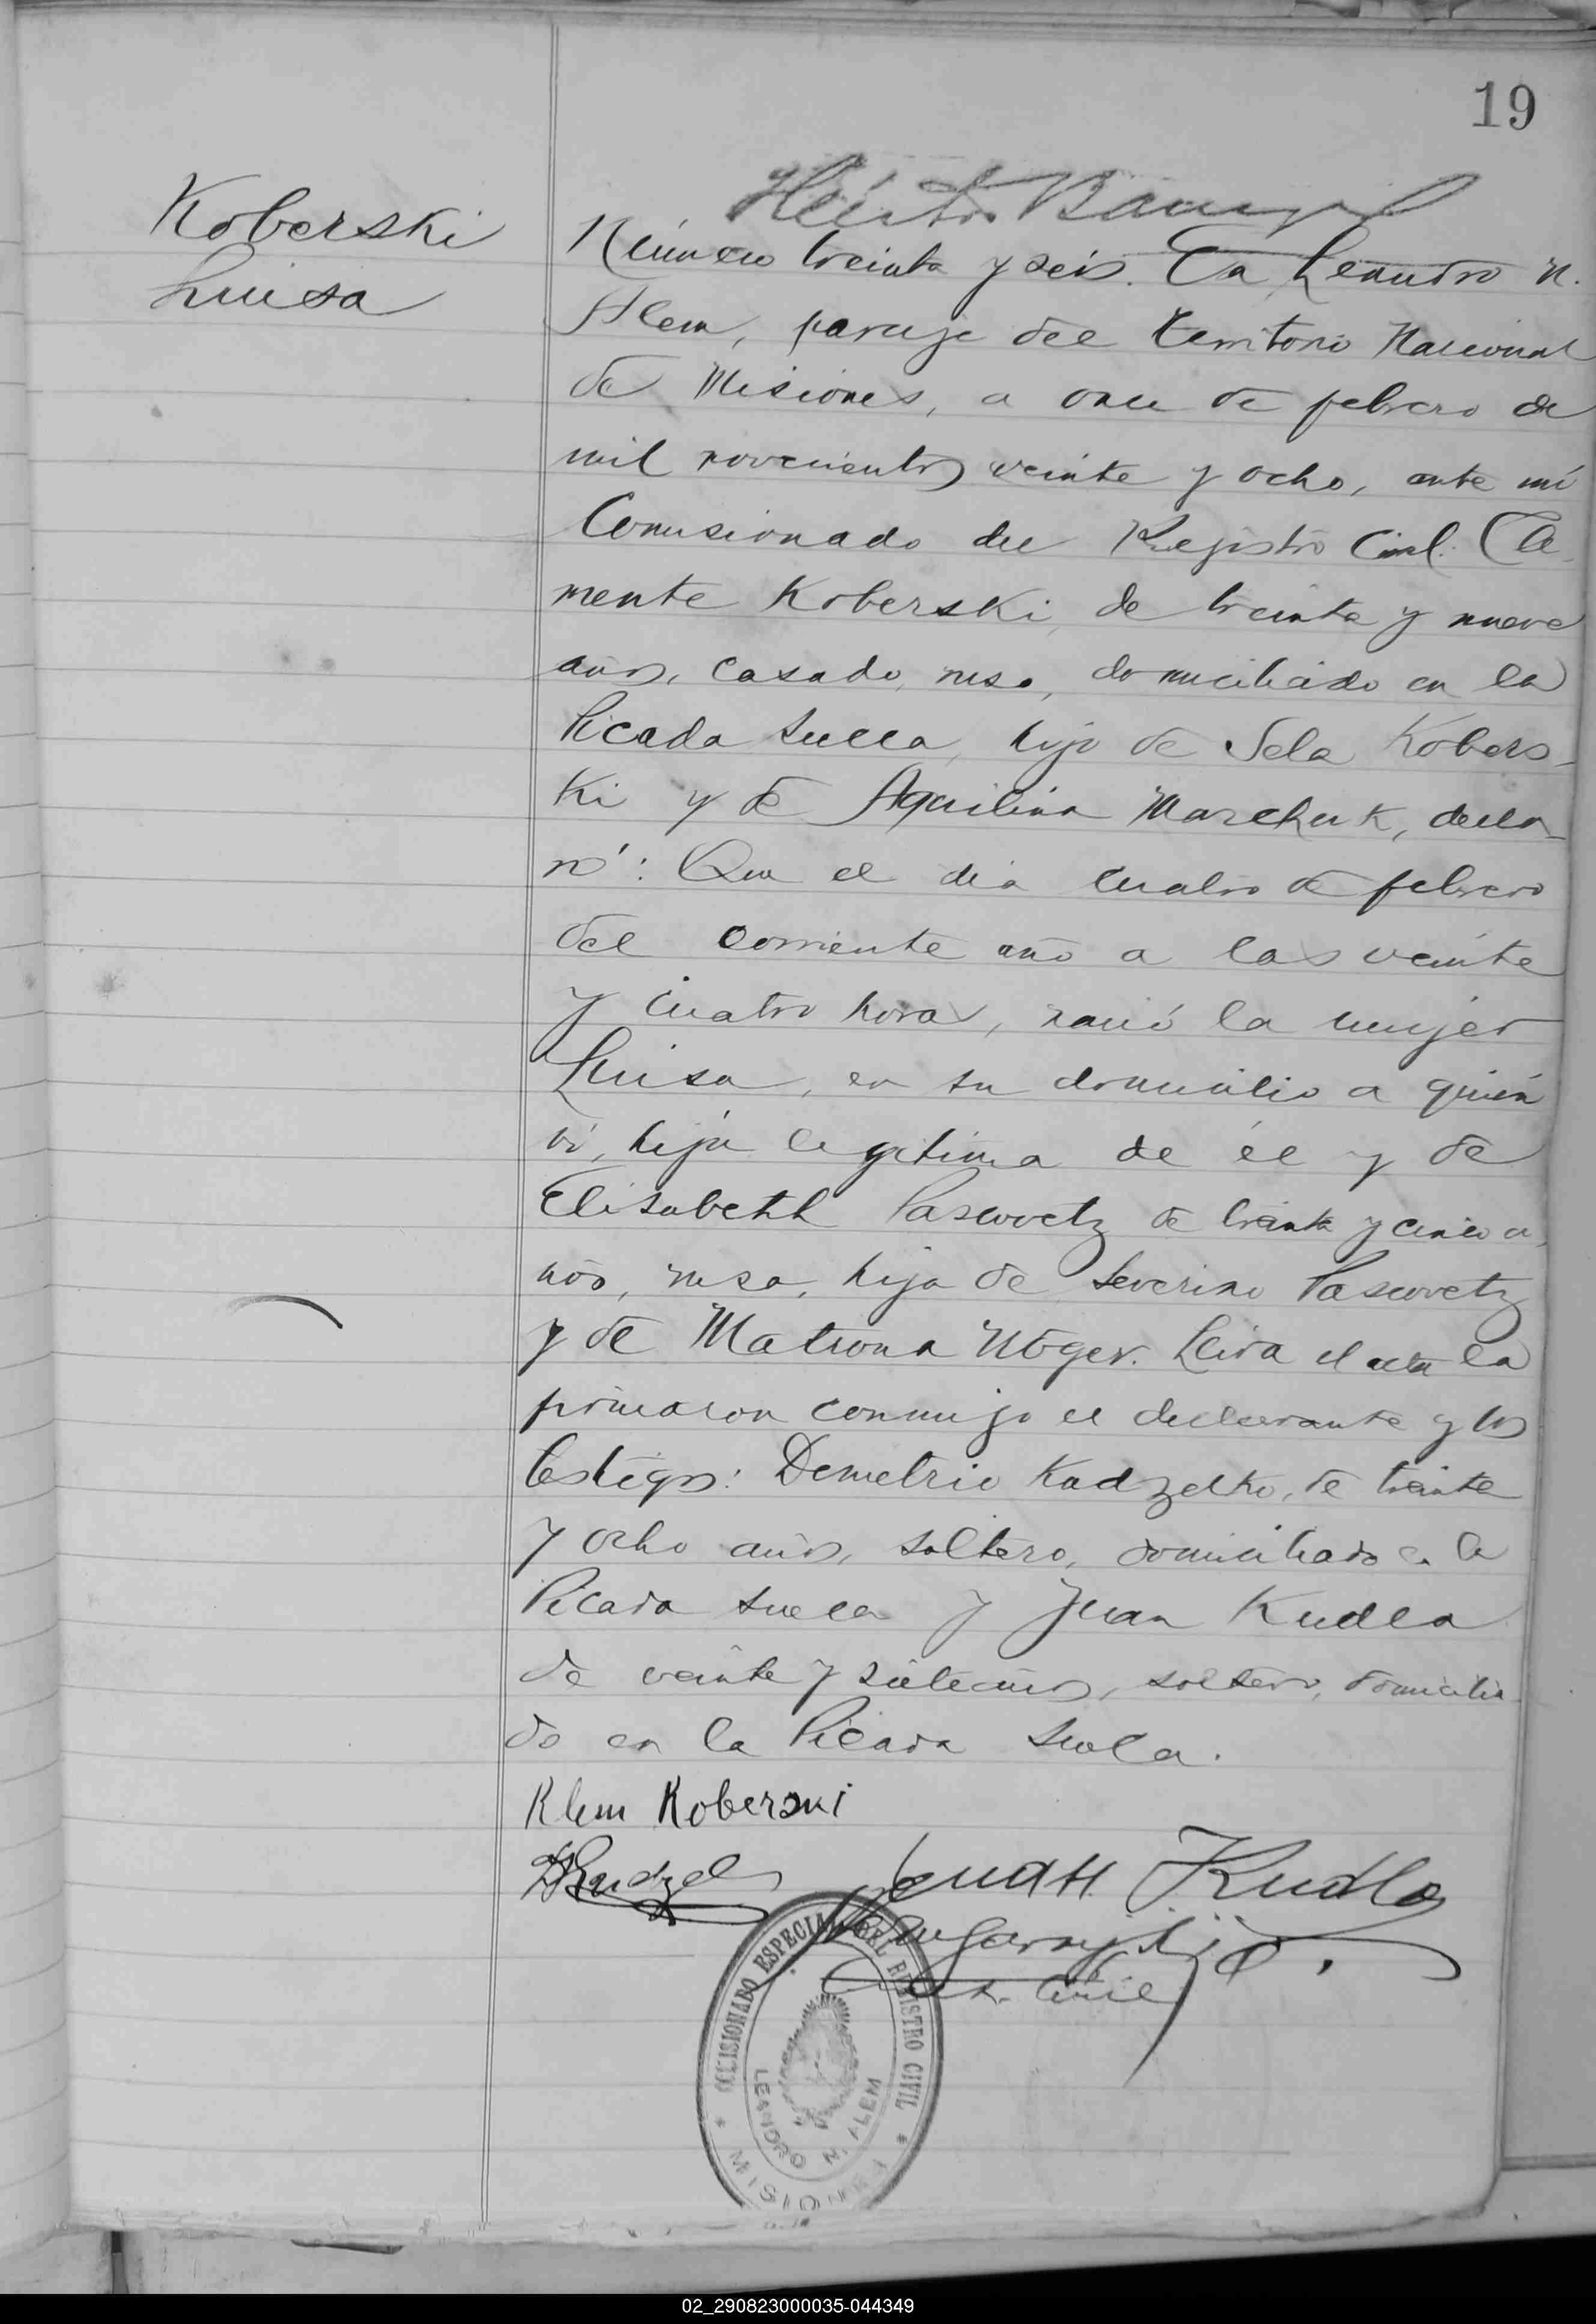 19
Koberski
Luisa
Número treinta y seis. En Leandro N.
Alem, paraje del Territorio Nacional
de Misiones, a once de febrero de
mil novecientos veinte y ocho, ante mí
Comisionado del Registro Civil. Cle-
mente Koberski, de treinta y nueve
años, casado, ruso, domiciliado en la
Picada Sueca, hijo de Sela Kobers-
ki y de Aquilina Marchuk, decla-
ró: Que el día cuatro de febrero
del corriente año a las veinte
y cuatro horas, nació la mujer
Luisa, en su domicilio a quién
ví, hija legitima de él y de
Elisabethh Pascovetz de treinta y cinco a-
ños, rusa, hija de Severino Pascovetz
y de Matrona Nöger. Leida el acta la
firmaron conmigo el declarante y los
testigos: Demetrio Kudzelko, de treinta
y ocho años, soltero, domiciliado en la
Picada Sueca y Juan Kudla
de veinte y siete años, soltero, domicilia
do en la Picada Sueca.
Klem Koberski
DKudzel
Juan Kudla
COMISIONADO ESPECIAL DEL REGISTRO CIVIL
LEANDRO N. ALEM
* MISIONES *
02_290823000035-044349